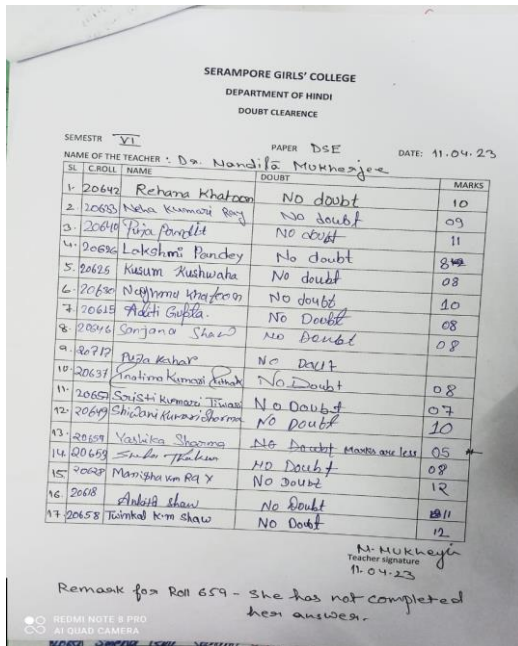 SERAMPORE GIRLS' COLLEGE
DEPARTMENT OF HINDI
DOUBT CLEARENCE
SEMESTR VI PAPER DSE DATE: 11.04.23
NAME OF THE TEACHER: Dr. Nandita Mukherjee
SL C.ROLL NAME DOUBT MARKS
1. 20642 Rehana Khatoon No doubt 10
2 20633 Neha Kumari Ray No doubt 09
3. 20640 Puja Pandit No doubt 11
4. 20696 Lakshmi Pandey No doubt 8
5. 20625 Kusum Kushwaha No doubt 08
6. 20630 Naghma Khatoon No doubt 10
7. 20615 Aditi Gupta. No Doubt 08
8. 20646 Sanjana Shaw No Doubt 08
9. 20717 Puja Kahar No
10. 20637 Kumari No Doubt 08
11. 20657 Sristi Kumari Tiwari No Doubt 07
12. 20649 Shivani Kumari Sharma No Doubt 10
13. 20659 Vashika Sharma No Doubt Marks are less 05
14. 20653 No Doubt 08
15 20628 Manisha Km Ray No Doubt 12
16. 20618 Ankita Shaw No Doubt 11
17. 20658 Twinkal Km Shaw No Doubt 12
M. Mukherjee
Teacher signature
11.04.23
Remark for Roll 659 - She has not completed
her answer.
REDMI NOTE 8 PRO
AI QUAD CAMERA